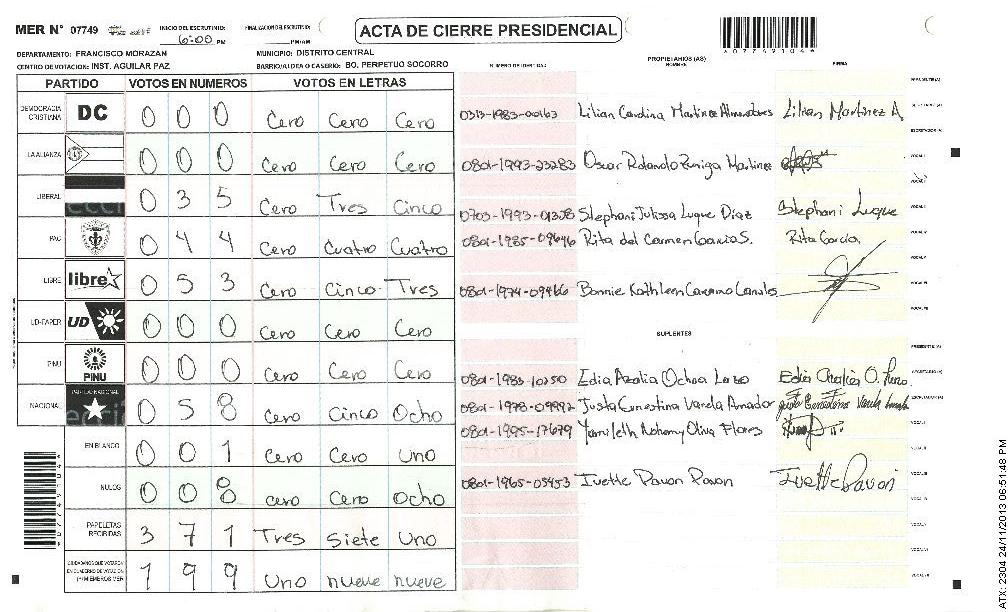 MER N° 07749
INICIO DEL ESCRUTINIO: 6:00 PM
FINALIZACION DEL ESCRUTINIO: PM/AM
ACTA DE CIERRE PRESIDENCIAL
*07749104*
DEPARTAMENTO: FRANCISCO MORAZAN
MUNICIPIO: DISTRITO CENTRAL
CENTRO DE VOTACION: INST. AGUILAR PAZ
BARRIO/ALDEA O CASERIO: BO. PERPETUO SOCORRO
PARTIDO VOTOS EN NUMEROS VOTOS EN LETRAS
DEMOCRACIA CRISTIANA DC 0 0 0 Cero Cero Cero
LA ALIANZA 0 0 0 Cero Cero Cero
LIBERAL 0 3 5 Cero Tres Cinco
PAC 0 4 4 Cero Cuatro Cuatro
LIBRE libre 0 5 3 Cero Cinco Tres
UD-FAPER UD 0 0 0 Cero Cero Cero
PINU PINU 0 0 0 Cero Cero Cero
NACIONAL PARTIDO NACIONAL 0 5 8 Cero Cinco Ocho
EN BLANCO 0 0 1 Cero Cero Uno
NULOS 0 0 8 Cero Cero Ocho
PAPELETAS RECIBIDAS 3 7 1 Tres Siete Uno
CIUDADANOS QUE VOTARON EN CUADERNO DE VOTACION (+) MIEMBROS MER 1 9 9 Uno nueve nueve
NUMERO DE IDENTIDAD
PROPIETARIOS (AS)
NOMBRE
FIRMA
0313-1983-00163 Lilian Carolina Martinez Almendares Lilian Martinez A.
0801-1993-23283 Oscar Rolando Zuniga Martinez
0703-1993-01328 Stephani Julissa Luque Diaz Stephani Luque
0801-1985-09646 Rita del Carmen Garcia S. Rita Garcia
0801-1974-09466 Bonnie Kathleen Canales
SUPLENTES
0801-1983-10250 Edia Azalia Ochoa Lazo
0801-1978-09992 Justa Ernestina Varela Amador
0801-1995-17679 Yamileth Nohemy Oliva Flores
0801-1965-05453 Ivette Pavon Pavon Ivette Pavon
ATX: 2304 24/11/2013 06:51:48 PM